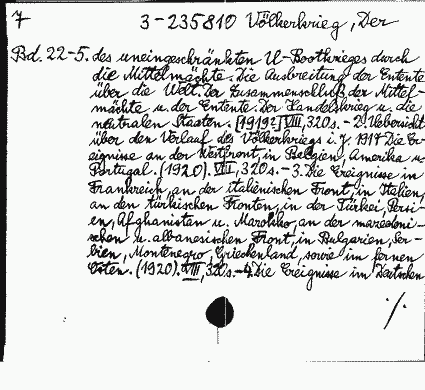 7 3-235810 Völkerkrieg, Der
Bd. 22-5. des uneingeschränkten U-Bootkrieges durch
die Mittelmächte. Die Ausbreitung der Entente
über die Welt. Der Zusammenschluß der Mittel-
mächte u. der Entente. Der Handelskrieg u. die
neutralen Staaten. [1919?] VIII, 320 s. - 2. Uebersicht
über den Verlauf des Völkerkriegs i. J. 1917. Die Er-
eignisse an der Westfront, in Belgien, Amerika u.
Portugal. (1920). VIII, 320 s. - 3. Die Ereignisse in
Frankreich, an der italienischen Front, in Italien,
an den türkischen Fronten, in der Türkei, Persi-
en, Afghanistan u. Marokko, an der mazedoni-
schen u. albanesischen Front, in Bulgarien, Ser-
bien, Montenegro, Griechenland, sowie im fernen
Osten. (1920). VIII, 320 s. - 4. Die Ereignisse im Deutschen
./.